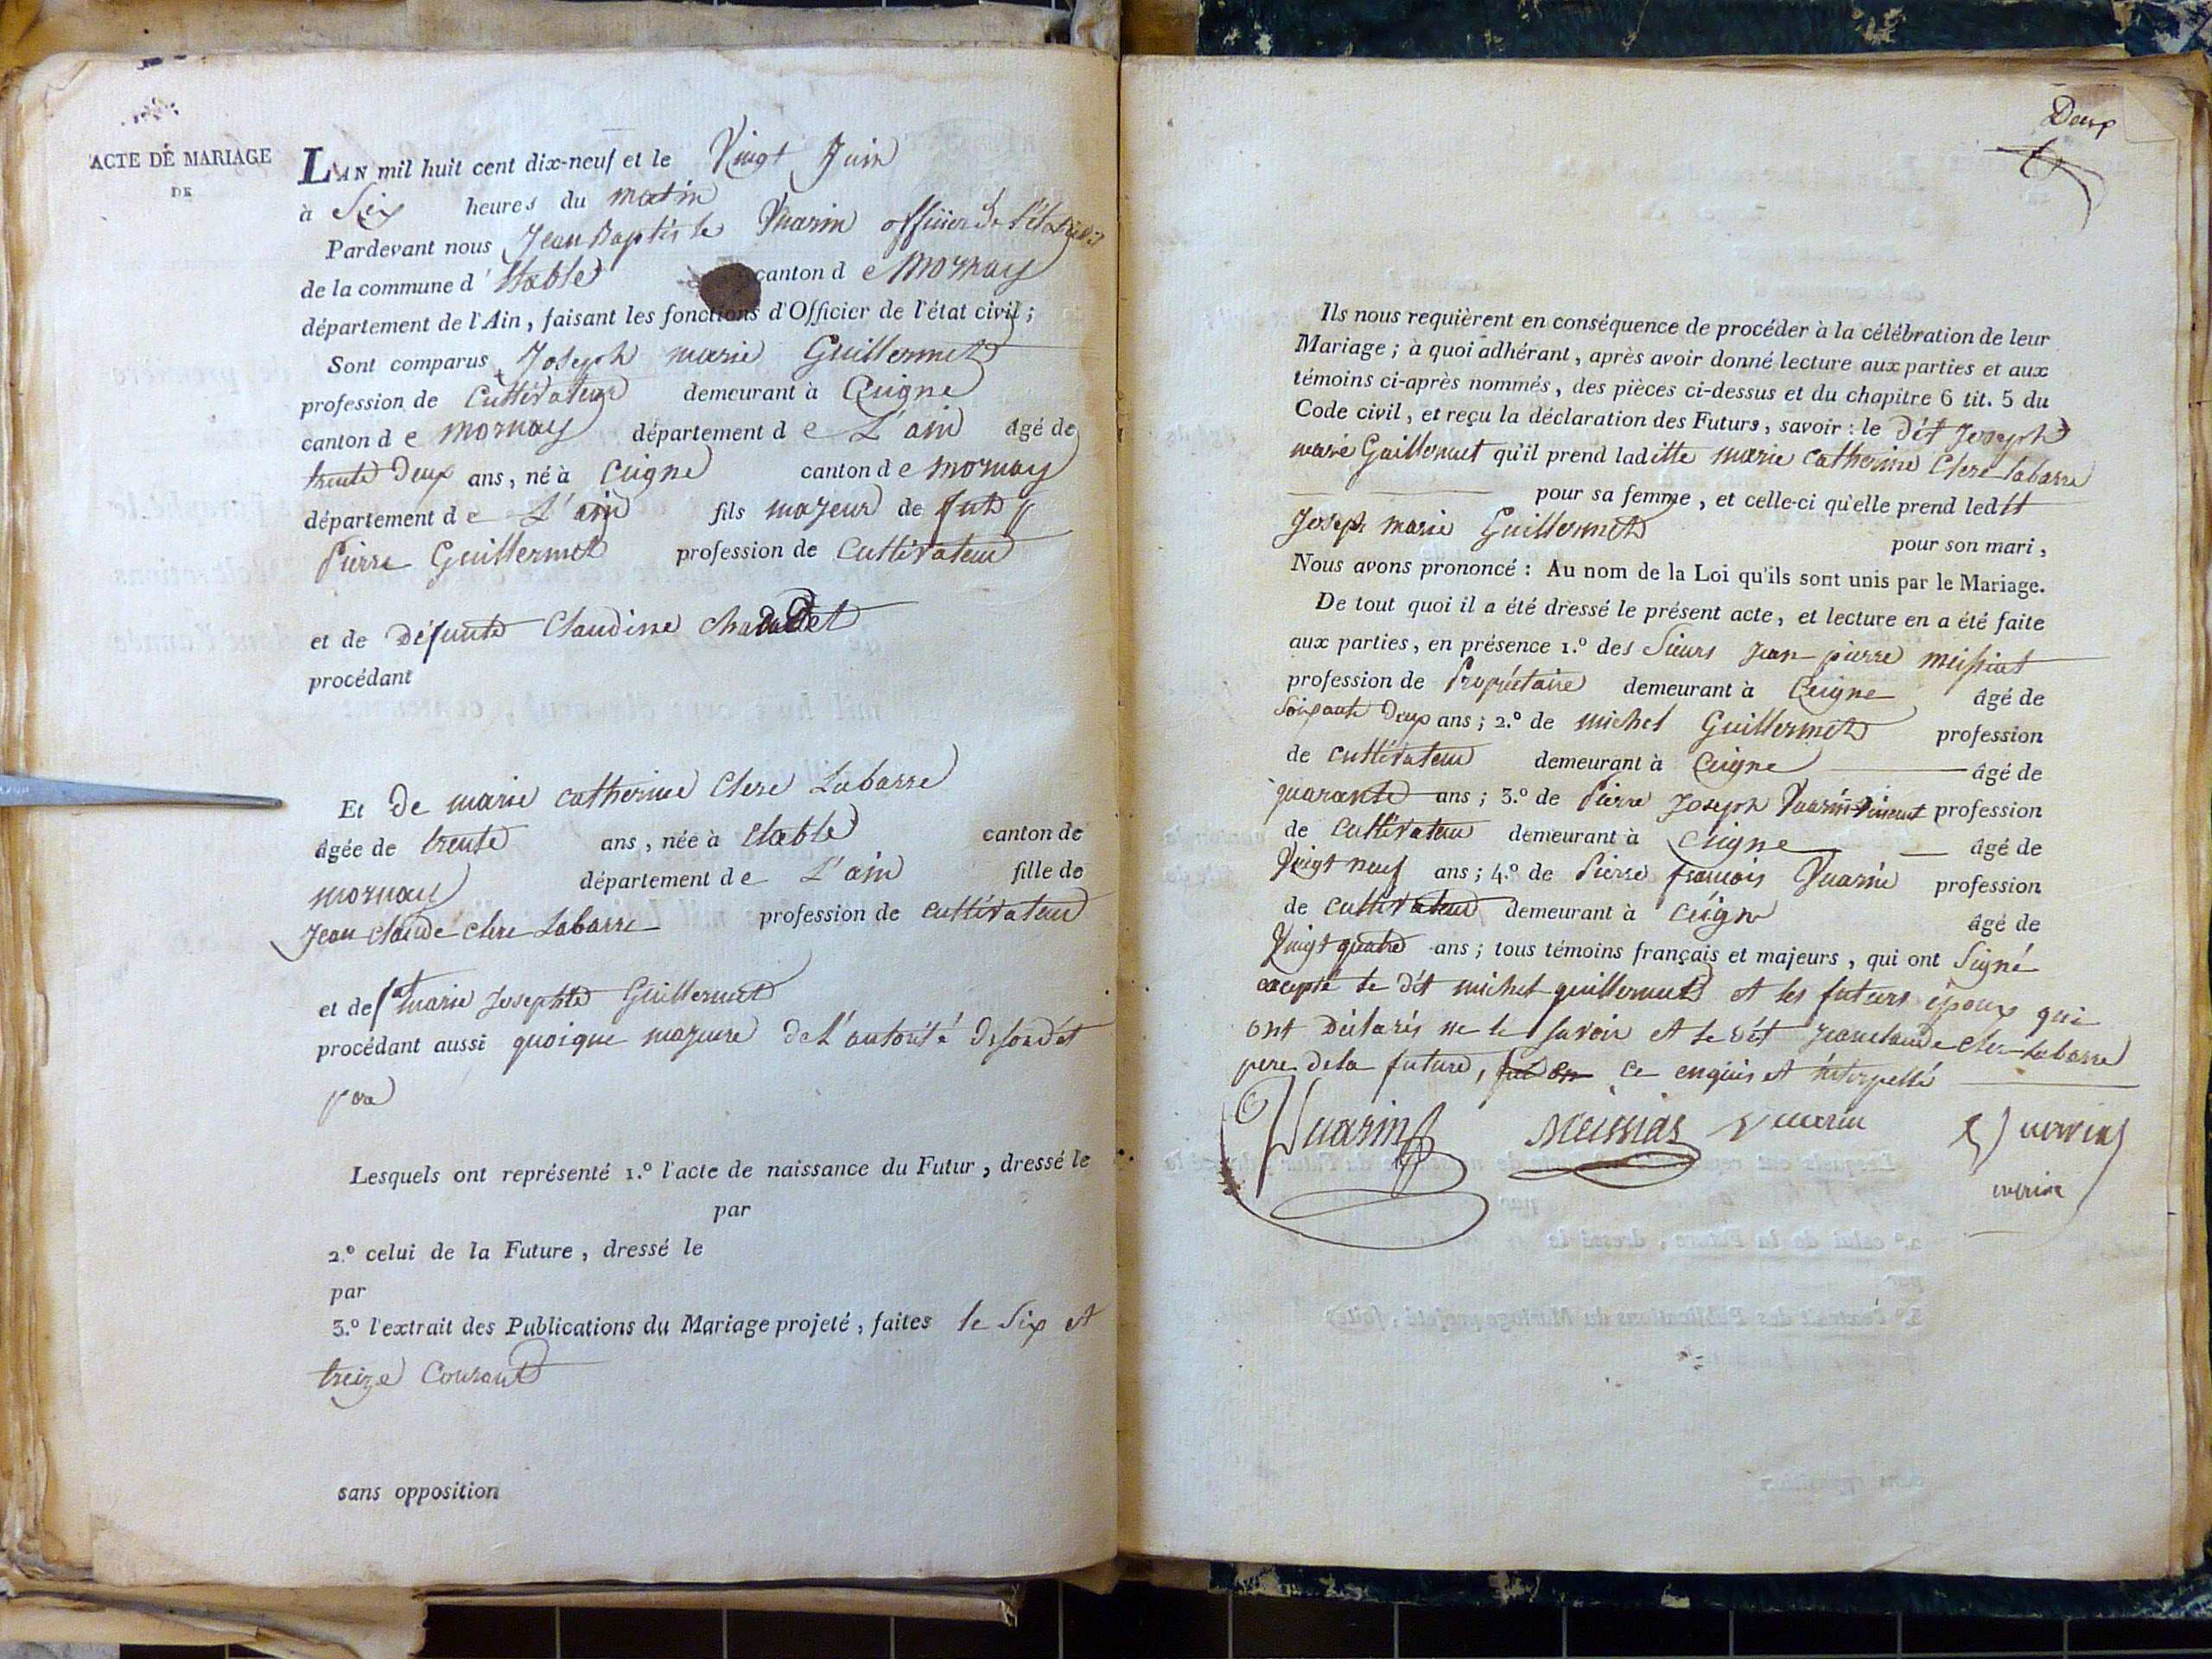 ACTE DE MARIAGE
DE
LAN mil huit cent dix-neuf et le Vingt Juin
à Six heures du matin
Pardevant nous Jean Baptiste Vuarin officier de l'état civil
de la commune d'Etable canton de Mornay
département de l'Ain, faisant les fonctions d'Officier de l'état civil;
Sont comparus Joseph marie Guillermet
profession de Cultivateur demeurant à Ceigne
canton de mornay département de L'ain âgé de
trente deux ans, né à Ceigne canton de mornay
département de L'ain fils majeur de fut
Pierre Guillermet profession de Cultivateur
et de Défunte Claudine
procédant
Et de marie catherine Clere Labarre
âgée de trente ans, née à Etable canton de
mornay département de L'ain fille de
Jean claude clere Labarre profession de cultivateur
et de marie Josephte Guillermet
procédant aussi quoique majeure de L'autorité de son dit
pere
Lesquels ont représenté 1.º l'acte de naissance du Futur, dressé le
par
2.º celui de la Future, dressé le
par
3.º l'extrait des Publications du Mariage projeté, faites le Six et
treize Courant
sans opposition
Deux
Ils nous requièrent en conséquence de procéder à la célébration de leur
Mariage; à quoi adhérant, après avoir donné lecture aux parties et aux
témoins ci-après nommés, des pièces ci-dessus et du chapitre 6 tit. 5 du
Code civil, et reçu la déclaration des Futurs, savoir: le dit Joseph
marie Guillermet qu'il prend laditte marie catherine Clere Labarre
pour sa femme, et celle-ci qu'elle prend ledit
Joseph marie Guillermet pour son mari,
Nous avons prononcé: Au nom de la Loi qu'ils sont unis par le Mariage.
De tout quoi il a été dressé le présent acte, et lecture en a été faite
aux parties, en présence 1.º des Sieurs Jean pierre meissiat
profession de Propriétaire demeurant à Ceigne âgé de
Soixante Deux ans; 2.º de michel Guillermet profession
de cultivateur demeurant à Ceigne âgé de
quarante ans; 3.º de Pierre Joseph Vuarin Vincent profession
de Cultivateur demeurant à Ceigne âgé de
Vingt neuf ans; 4.º de Pierre francois Vuarin profession
de cultivateur demeurant à Ceigne âgé de
Vingt quatre ans; tous témoins français et majeurs, qui ont Signé
excepté le dit michel guillermet et les futurs époux qui
ont Déclarés ne le savoir et le dit Jean claude clere Labarre
pere de la future, de ce enquis et interpellé
Vuarin Meissias Vuarin Vuarin